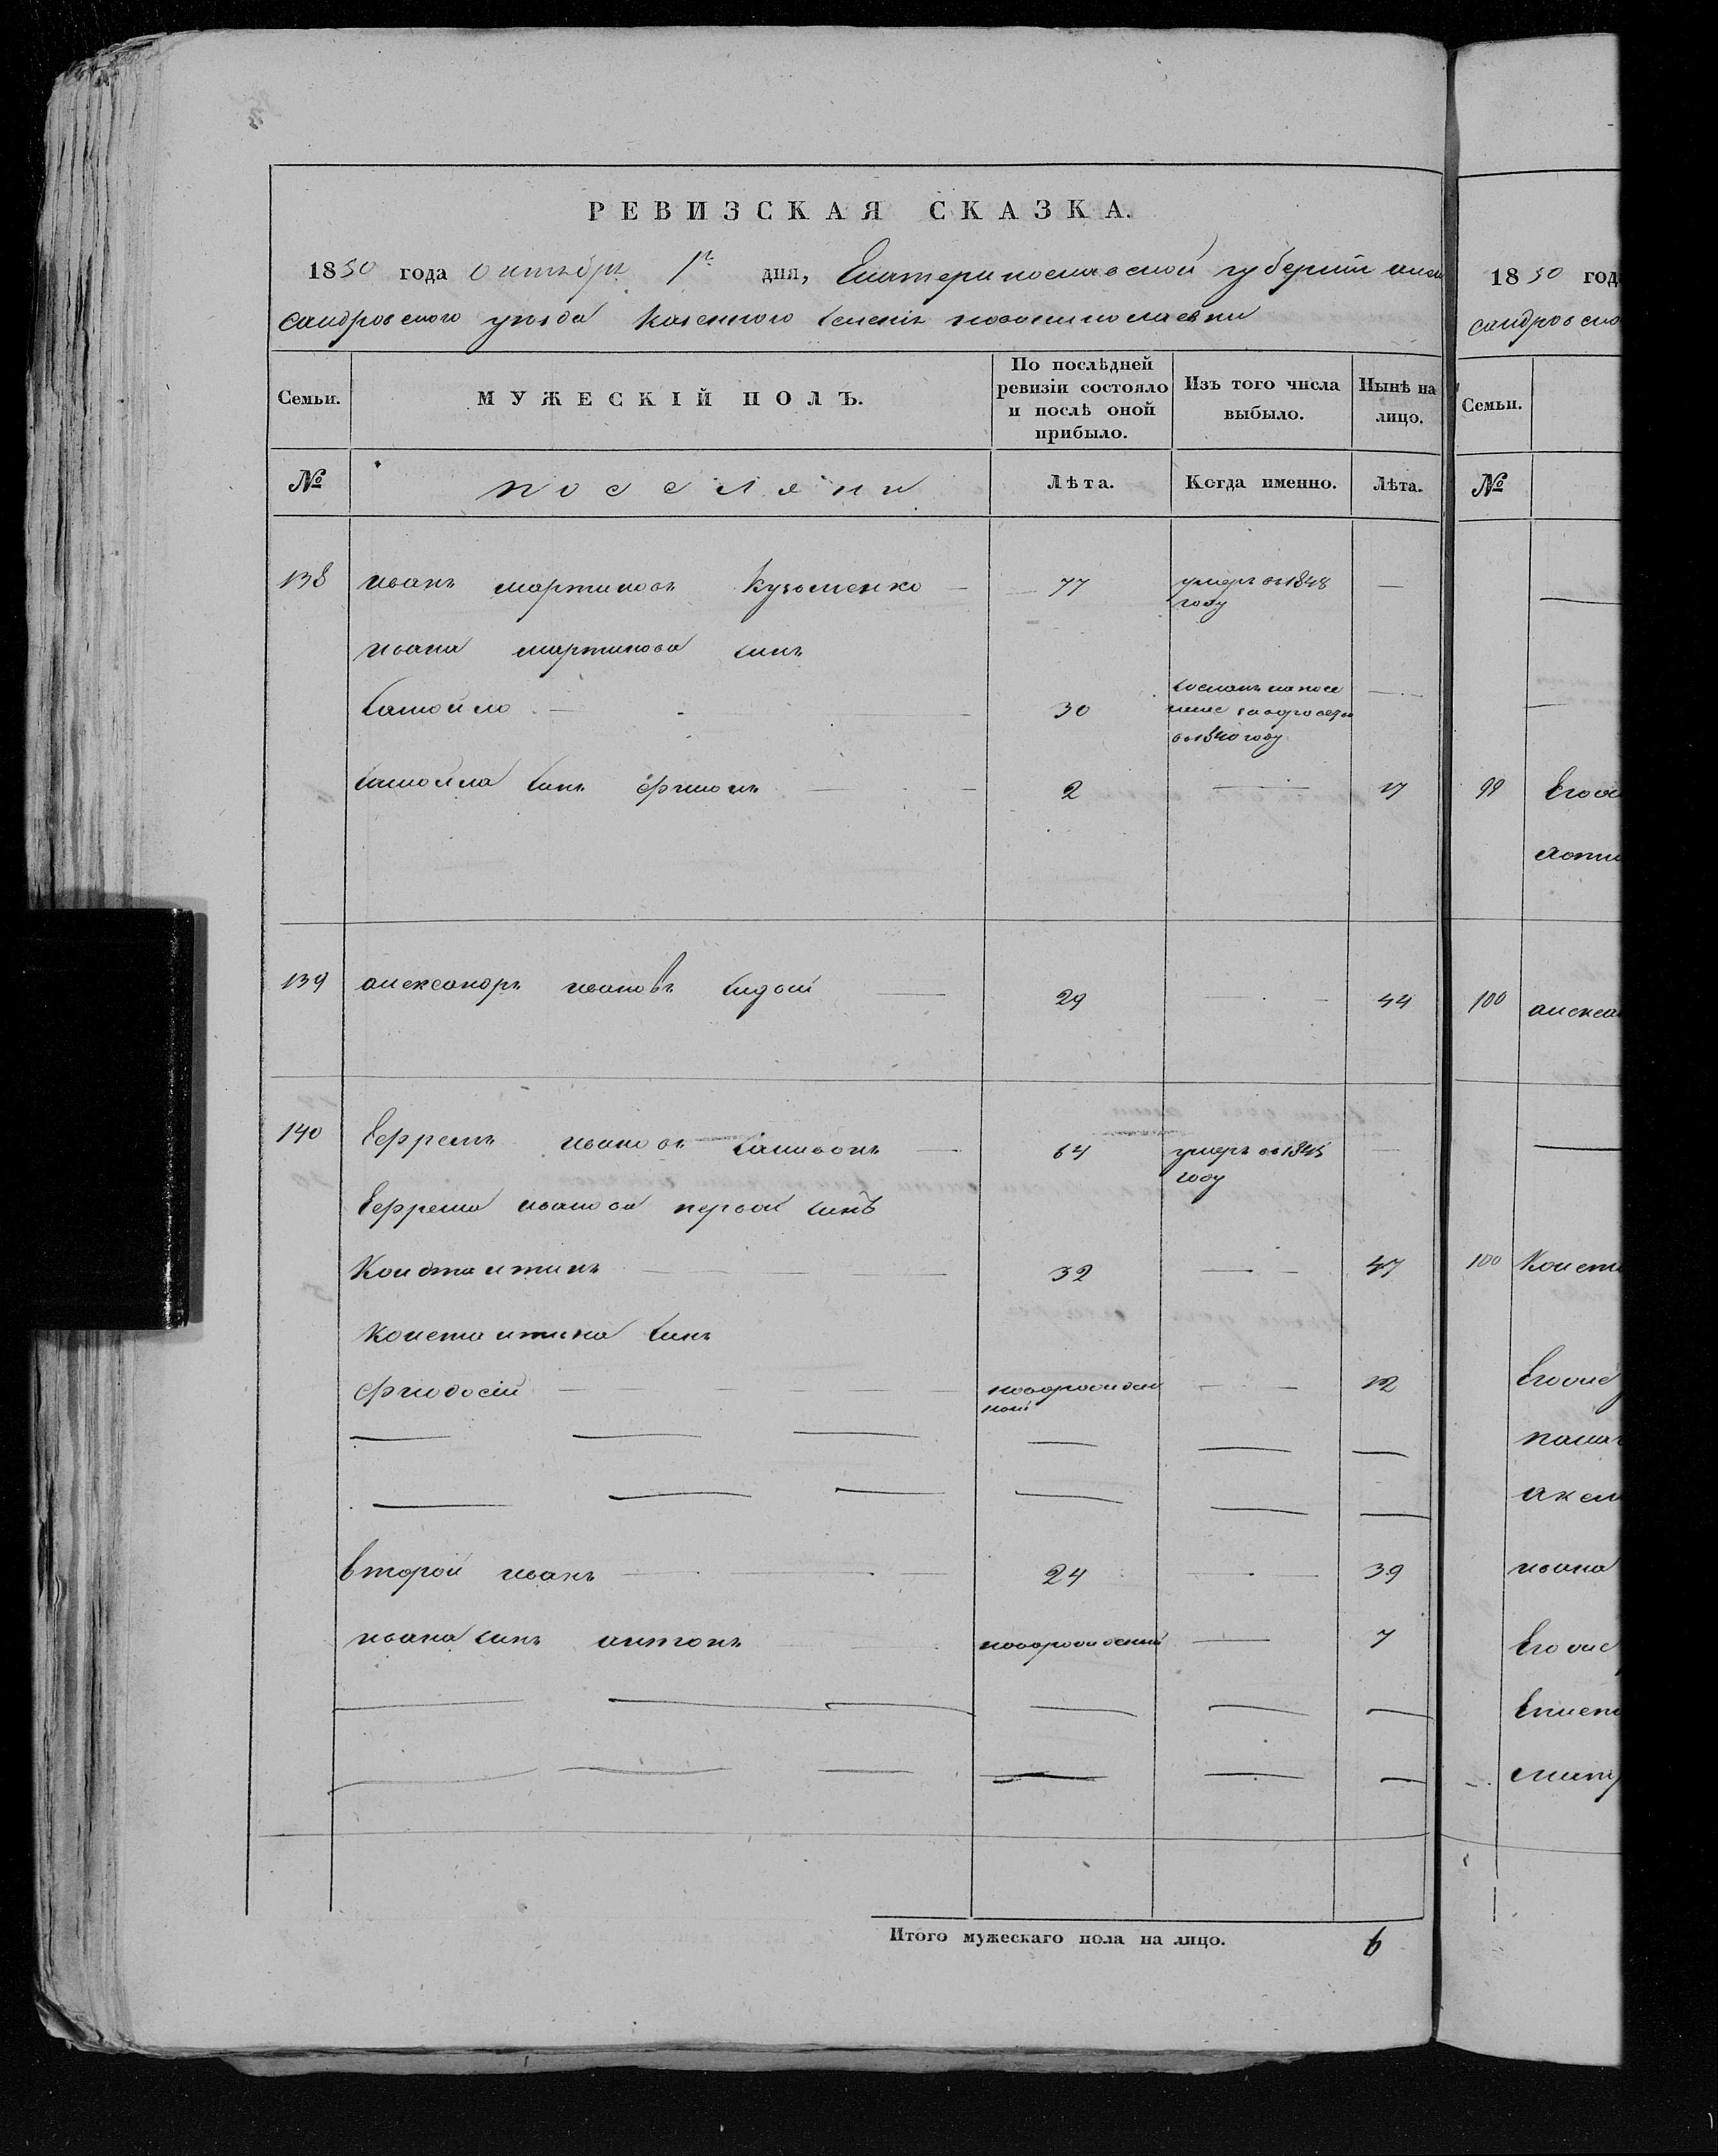 РЕВИЗСКАЯ СКАЗКА.
1850 года октября 1го дня, Екатеринославской губернии алек
сандровского уезда казенного селения новониколаевки
Семьи. МУЖЕСКІЙ ПОЛЪ. По послѣдней ревизіи состояло и послѣ оной прибыло. Изъ того числа выбыло. Нынѣ на лицо.
№ поселяни Лѣта. Когда именно. Лѣта.
138 иванъ мартиновъ Кузменко 77 умеръ въ 1848 году
ивана мартинова синъ
самойло 30 сосланъ на посе ление въ 1840 году
самойла синъ филипъ 2 17
139 александръ ивановъ 29 44
140 Ефремъ ивановъ 64 умеръ въ 1845 году
Ефрема иванова первой синъ
Константинъ 32 47
Константина синъ
Фиодосій новорожден ной 12
второй иванъ 24 39
ивана синъ антонъ новорожденний 7
Итого мужескаго пола на лицо. 6
1850 год
сандровско
Семьи.
№
99 Его
100 алекса
100 Конст
Его
ивана
Его